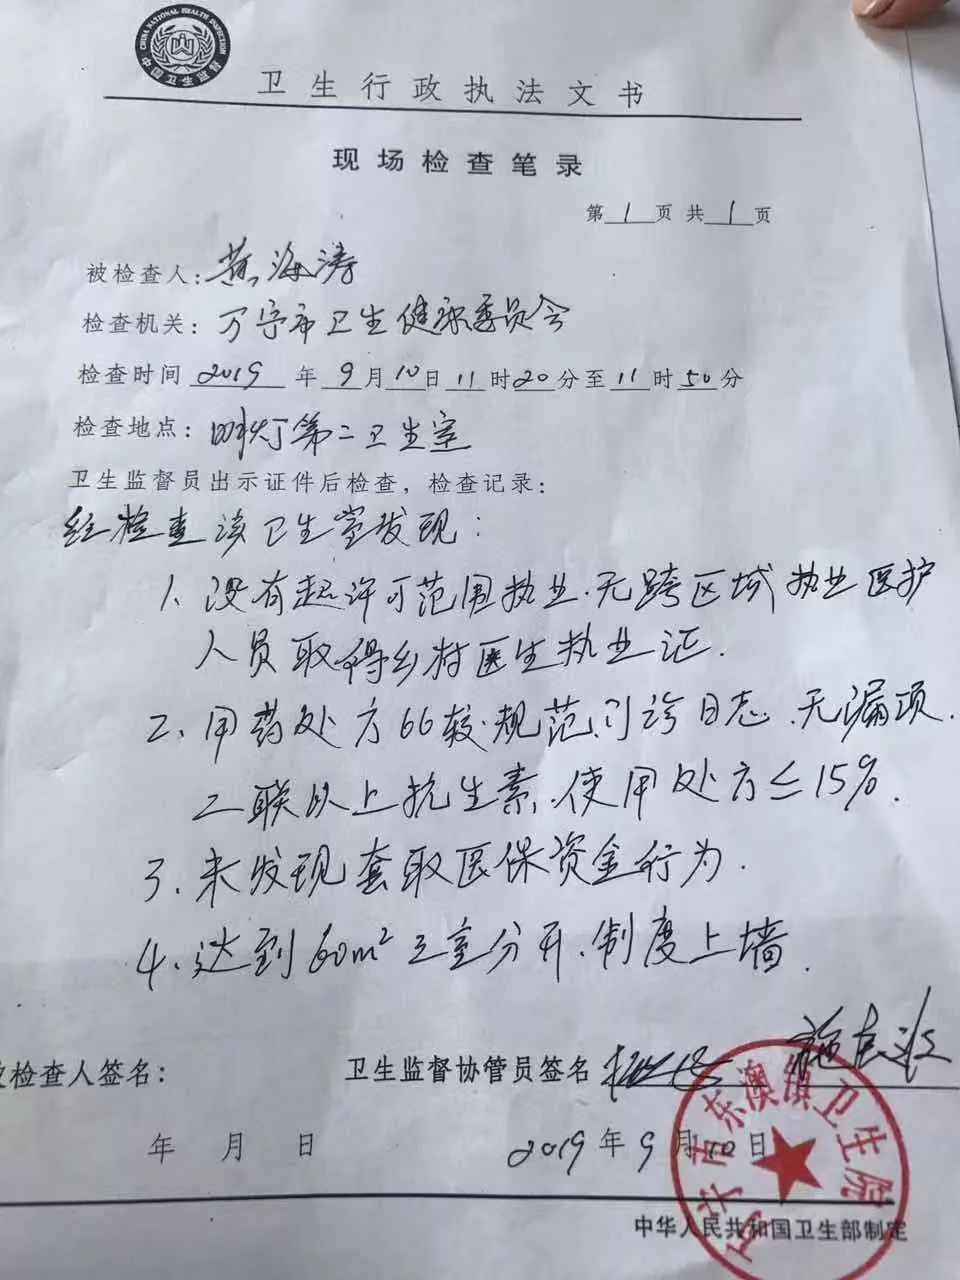 CHINA NATIONAL HEALTH INSPECTION
中国卫生监督
卫生行政执法文书
现场检查笔录
第1页 共1页
被检查人:黄海涛
检查机关:万宁市卫生健康委员会
检查时间 2019 年 9 月 10 日 11 时 20 分至 11 时 50 分
检查地点: 第二卫生室
卫生监督员出示证件后检查,检查记录:
经检查该卫生室发现:
1、没有超许可范围执业.无跨区域执业医护
人员取得乡村医生执业证.
2、用药处方66较.规范、门诊日志.无漏项.
二联以上抗生素、使用处方≤15%.
3、未发现套取医保资金行为.
4、达到60m² 三室分开、制度上墙.
检查人签名:
卫生监督协管员签名
年 月 日
2019 年 9 月 10 日
万宁市东澳镇卫生院
中华人民共和国卫生部制定